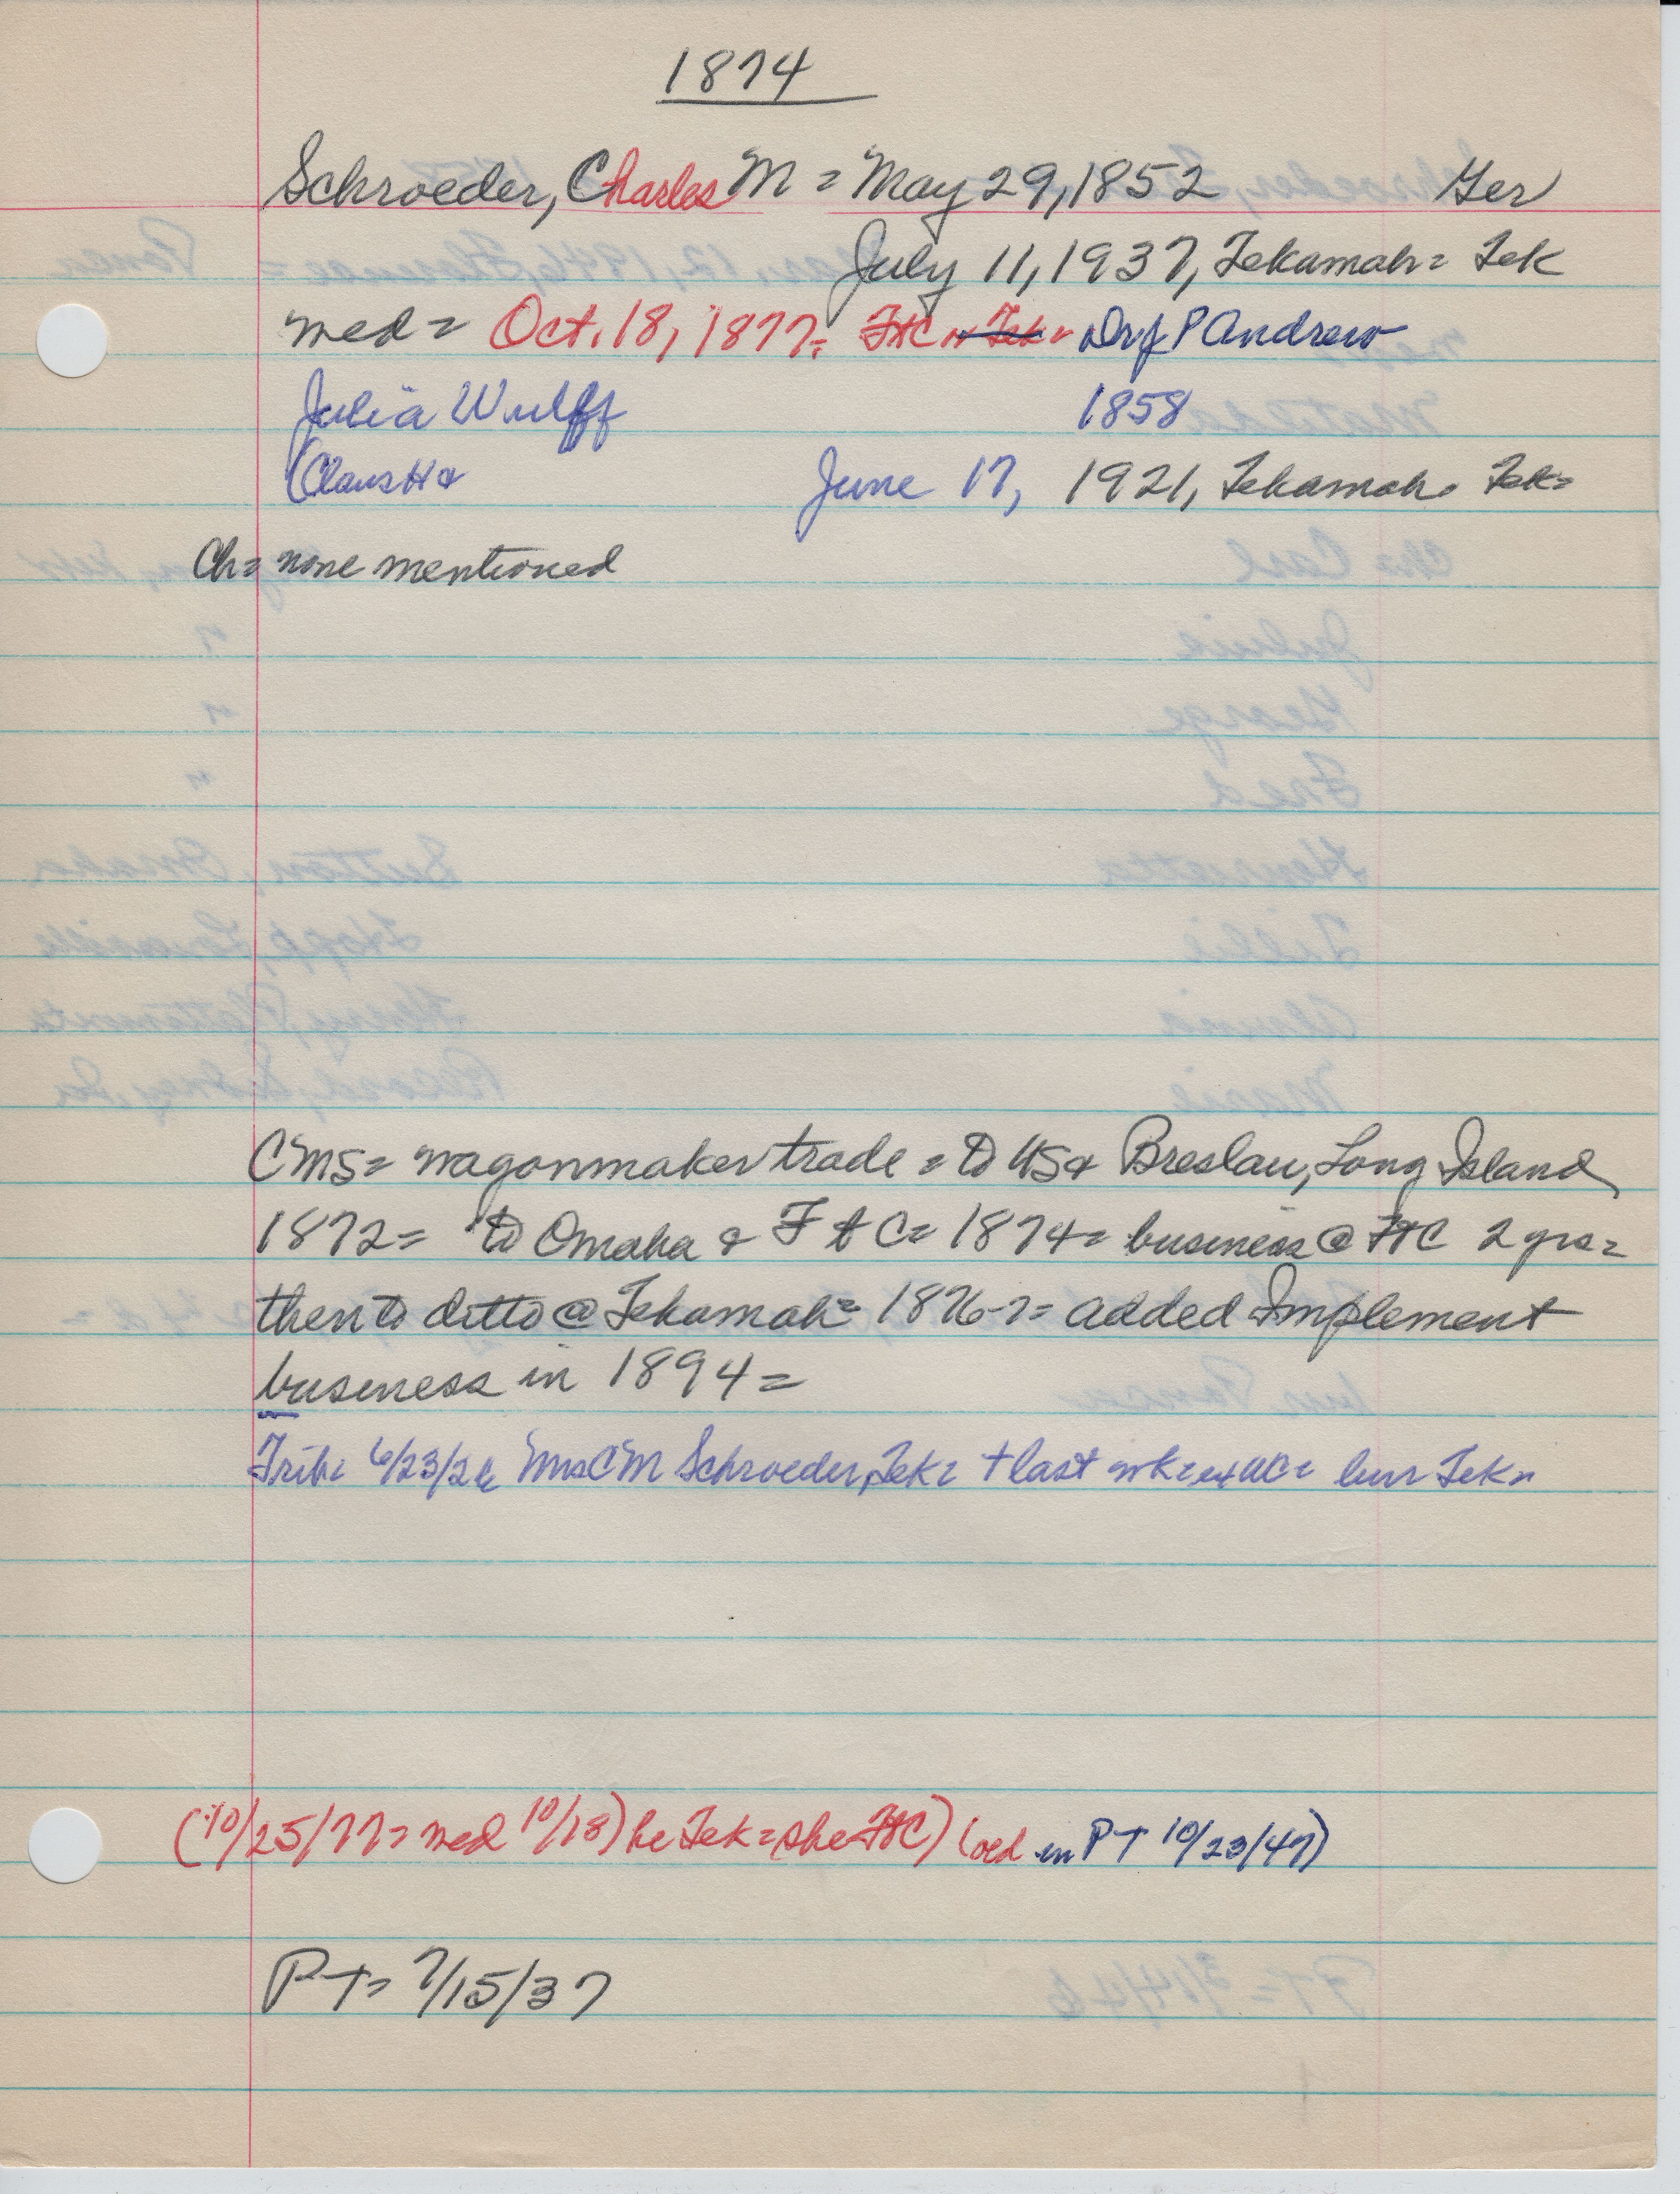 1874
Schroeder, Charles M = May 29, 1852 Ger
July 11, 1937, Tekamah = Tek
med = Oct. 18, 1877 = FtC = Tek = Dr J P Andrew
Julia Wulff 1858
(Claus H & June 17, 1921, Tekamah = Tek =
Ch = none mentioned
CMS = wagonmaker trade = to US & Breslau, Long Island
1872 = to Omaha & Ft C = 1874 = business @ FtC 2 yrs =
then to ditto @ Tekamah = 1876-7 = added Implement
business in 1894 =
Trib = 6/23/21 Mrs C M Schroeder, Tek = † last wk = = bur Tek =
(10/25/77 = med 10/18) he Tek = she FtC) ( in PT 10/23/47)
PT = 7/15/37